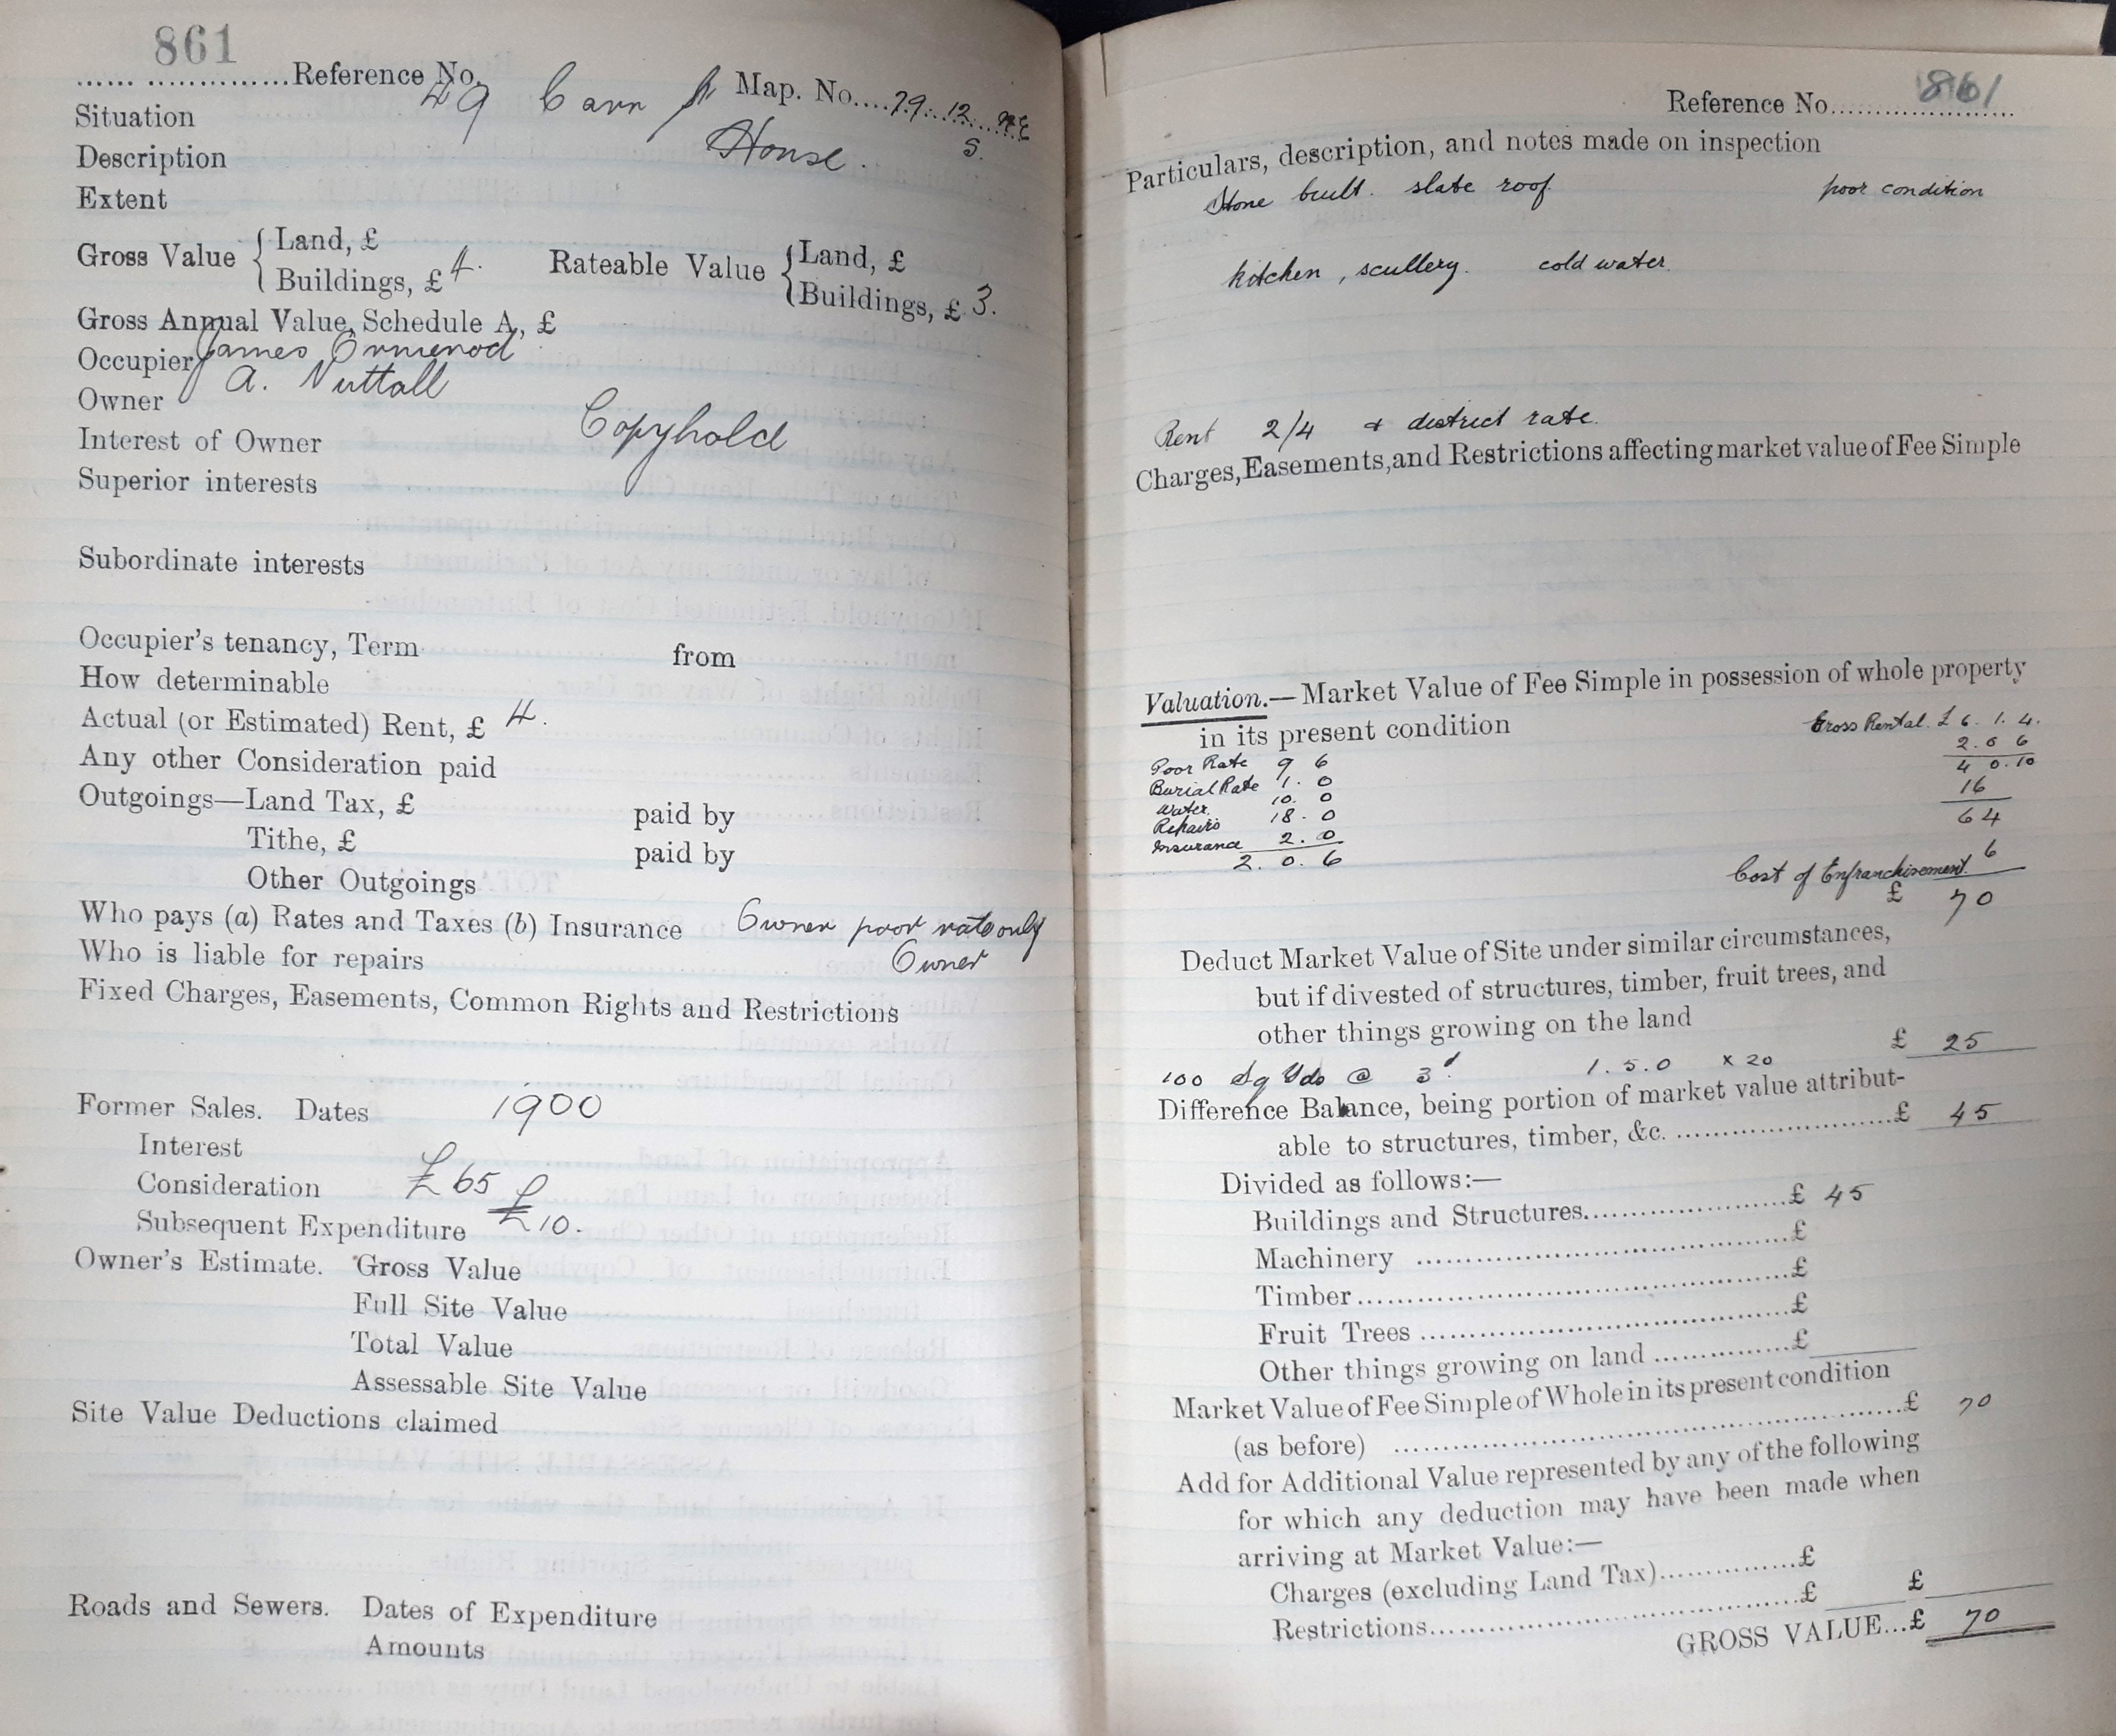 861
...... ..............Reference No.
49 Carr St Map. No....79...12...NE
Situation
S.
Description House.
Extent
Gross Value { Land, £
Buildings, £ 4. Rateable Value { Land, £
Buildings, £ 3.
Gross Annual Value, Schedule A, £
Occupier James Ormerod
Owner A. Nuttall
Interest of Owner Copyhold
Superior interests
Subordinate interests
Occupier's tenancy, Term from
How determinable
Actual (or Estimated) Rent, £ 4.
Any other Consideration paid
Outgoings—Land Tax, £ paid by
Tithe, £ paid by
Other Outgoings
Who pays (a) Rates and Taxes (b) Insurance Owner poor rate only
Who is liable for repairs Owner
Fixed Charges, Easements, Common Rights and Restrictions
Former Sales. Dates 1900
Interest
Consideration £65
Subsequent Expenditure £10.
Owner's Estimate. Gross Value
Full Site Value
Total Value
Assessable Site Value
Site Value Deductions claimed
Roads and Sewers. Dates of Expenditure
Amounts
Reference No. 861
Particulars, description, and notes made on inspection
Stone built. slate roof. poor condition
kitchen, scullery. cold water.
Rent 2/4 + district rate.
Charges, Easements, and Restrictions affecting market value of Fee Simple
Valuation.—Market Value of Fee Simple in possession of whole property
in its present condition Gross Rental. £ 6. 1. 4.
Poor Rate 9 6 2. 0 6
Burial Rate 1. 0 4 0. 10
Water. 10. 0 16
Repairs 18. 0 64
Insurance 2. 0
2. 0. 6
Cost of Enfranchisement. 6
£ 70
Deduct Market Value of Site under similar circumstances,
but if divested of structures, timber, fruit trees, and
other things growing on the land £ 25
100 Sq Yds @ 3d. 1. 5. 0 x 20
Difference Balance, being portion of market value attribut-
able to structures, timber, &c. ........................£ 45
Divided as follows:—
Buildings and Structures........................£ 45
Machinery ........................£
Timber........................£
Fruit Trees ........................£
Other things growing on land ...............£
Market Value of Fee Simple of Whole in its present condition
(as before) ........................£ 70
Add for Additional Value represented by any of the following
for which any deduction may have been made when
arriving at Market Value:—
Charges (excluding Land Tax)...............£
Restrictions........................£ £
GROSS VALUE...£ 70